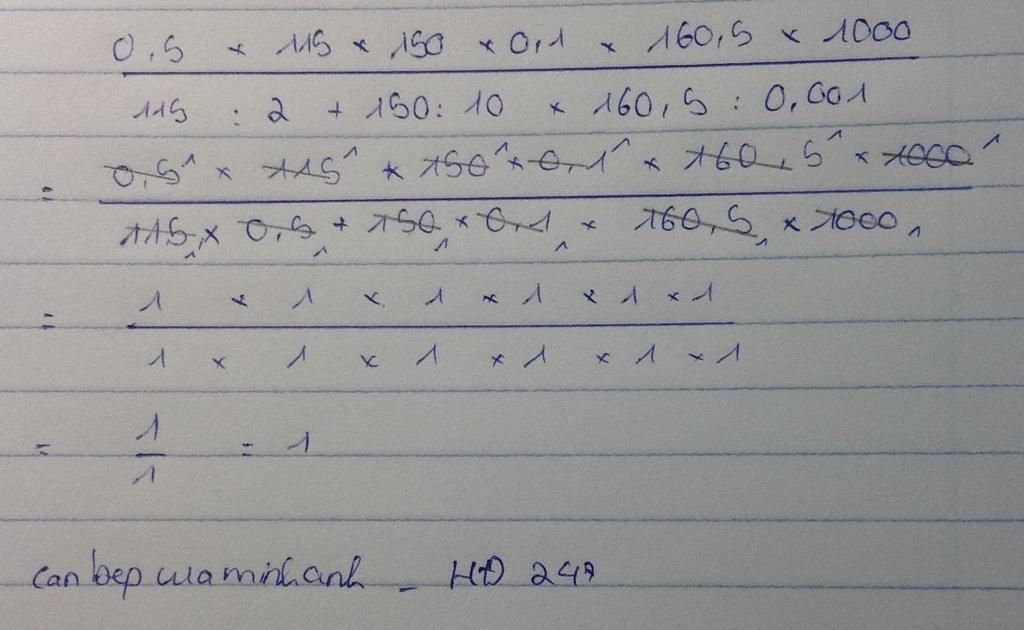 0,5 × 115 × 150 × 0,1 × 160,5 × 1000
115 : 2 + 150 : 10 × 160,5 : 0,001
= 0,5¹ × 115¹ × 150¹ × 0,1¹ × 160,5¹ × 1000¹
115₁ × 0,5₁ + 150₁ × 0,1₁ × 160,5₁ × 1000₁
= 1 × 1 × 1 × 1 × 1 × 1
1 × 1 × 1 × 1 × 1 × 1
= 1 = 1
1
canbepcuaminhanh _ HĐ 247